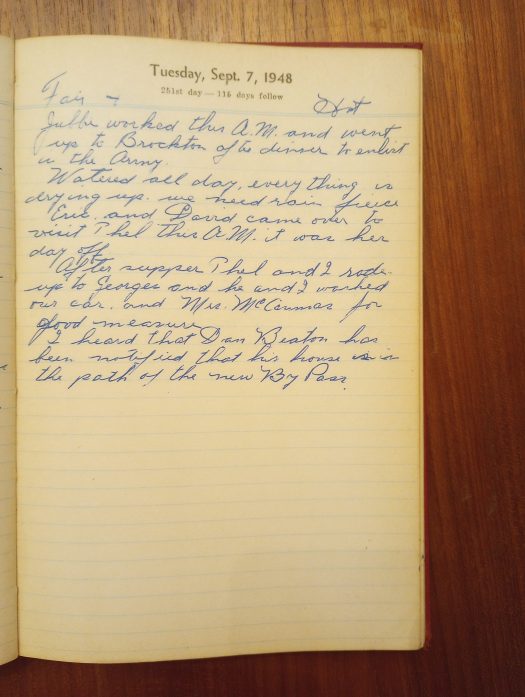 Tuesday, Sept. 7, 1948
251st day — 115 days follow
Fair + Hot
worked this A.M. and went
up to Brockton after dinner to enlist
in the Army.
Watered all day, everything is
drying up. we need rain fierce
Eric. and David came over to
visit Thel this A.M. it was her
day off.
After supper Thel and I rode
up to Georges and he and I washed
our car. and Mrs. for
good measure
I heard that Dan Beaton has
been notified that his house is in
the path of the new By Pass.